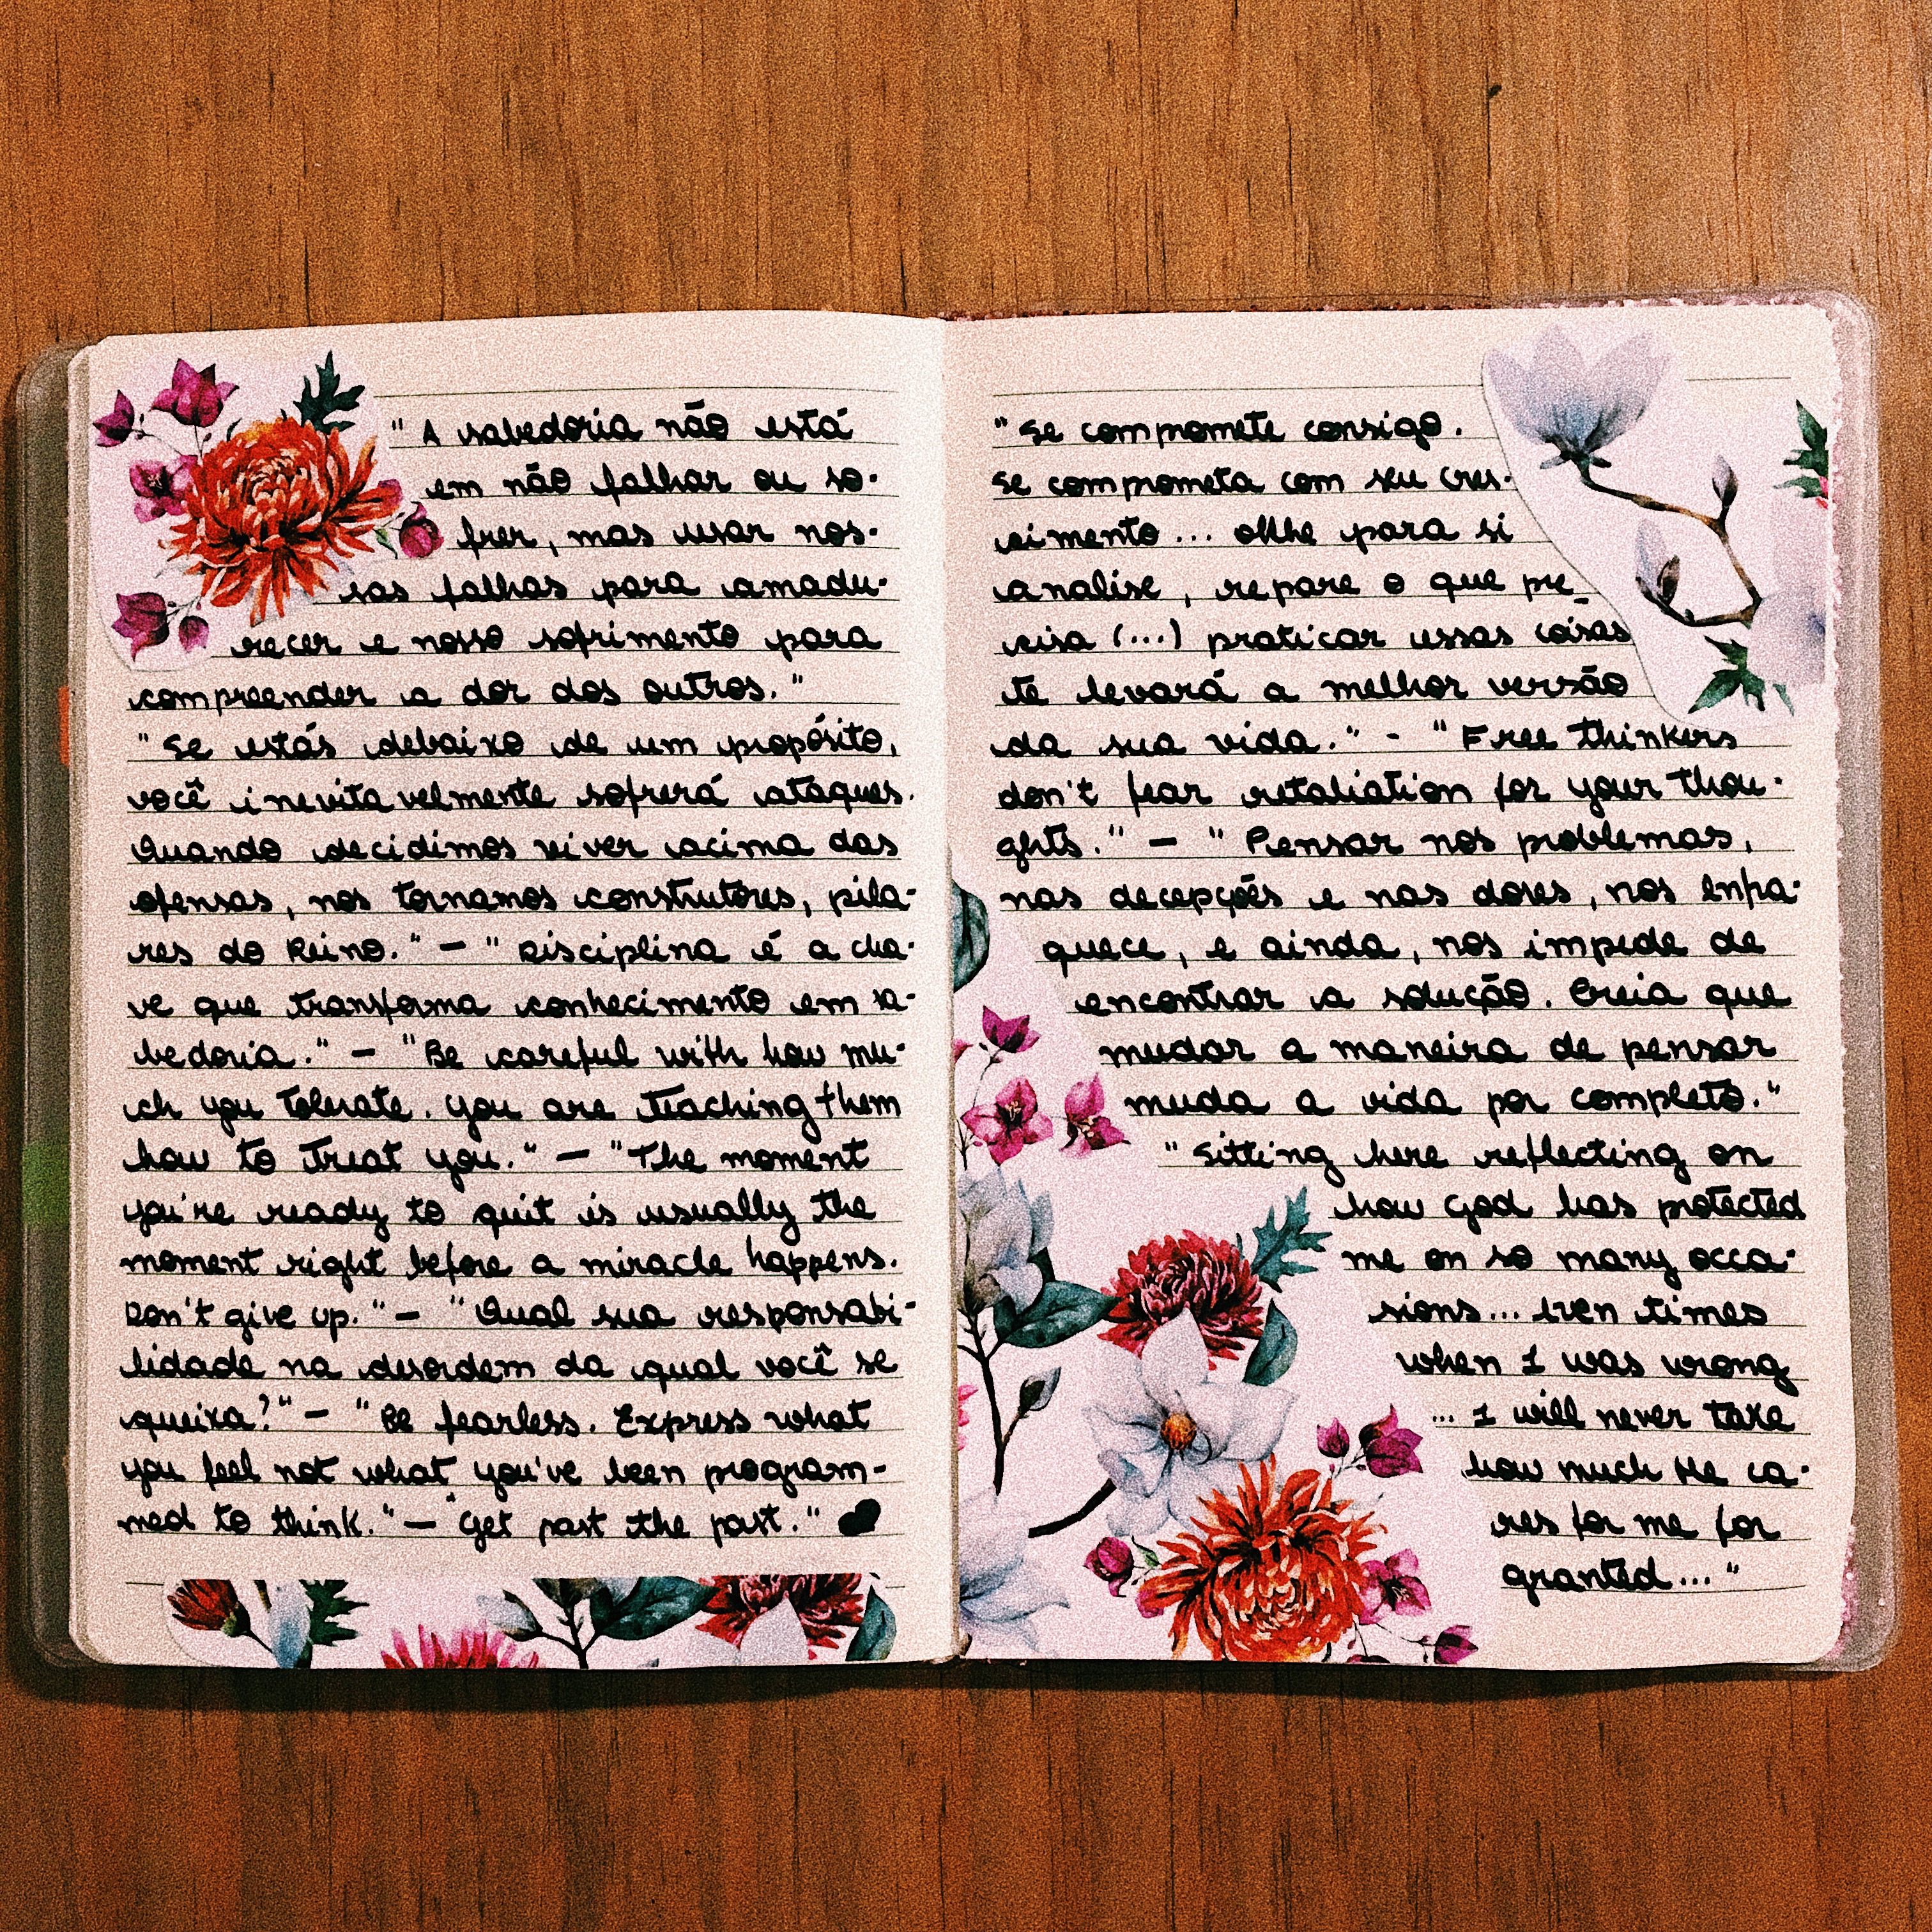 "A sabedoria não está
em não falhar ou so-
frer, mas usar nos-
sas falhas para amadu-
recer e nosso sofrimento para
compreender a dor dos outros."
"Se estás debaixo de um propósito,
você inevitavelmente sofrerá ataques.
Quando decidimos viver acima das
ofensas, nos tornamos construtores, pila-
res do Reino." - "Disciplina é a cha-
ve que transforma conhecimento em sa-
bedoria." - "Be careful with how mu-
ch you tolerate. You are teaching them
how to treat you." - "The moment
you're ready to quit is usually the
moment right before a miracle happens.
Don't give up." - "Qual sua responsabi-
lidade na desordem da qual você se
queixa?" - "Be fearless. Express what
you feel not what you've been program-
med to think." - "Get past the past." ♥
"Se compromete consigo.
Se comprometa com seu cres-
cimento... olhe para si
analise, repare o que pre_
cisa (...) praticar essas coisas
te levará a melhor versão
da sua vida." - "Free thinkers
don't fear retaliation for your thou-
ghts." - "Pensar nos problemas,
nas decepções e nas dores, nos enfra-
quece, e ainda, nos impede de
encontrar a solução. Creia que
mudar a maneira de pensar
muda a vida por completo."
"Sitting here reflecting on
how God has protected
me on so many occa-
sions... even times
when I was wrong
... I will never take
how much He ca-
res for me for
granted..."